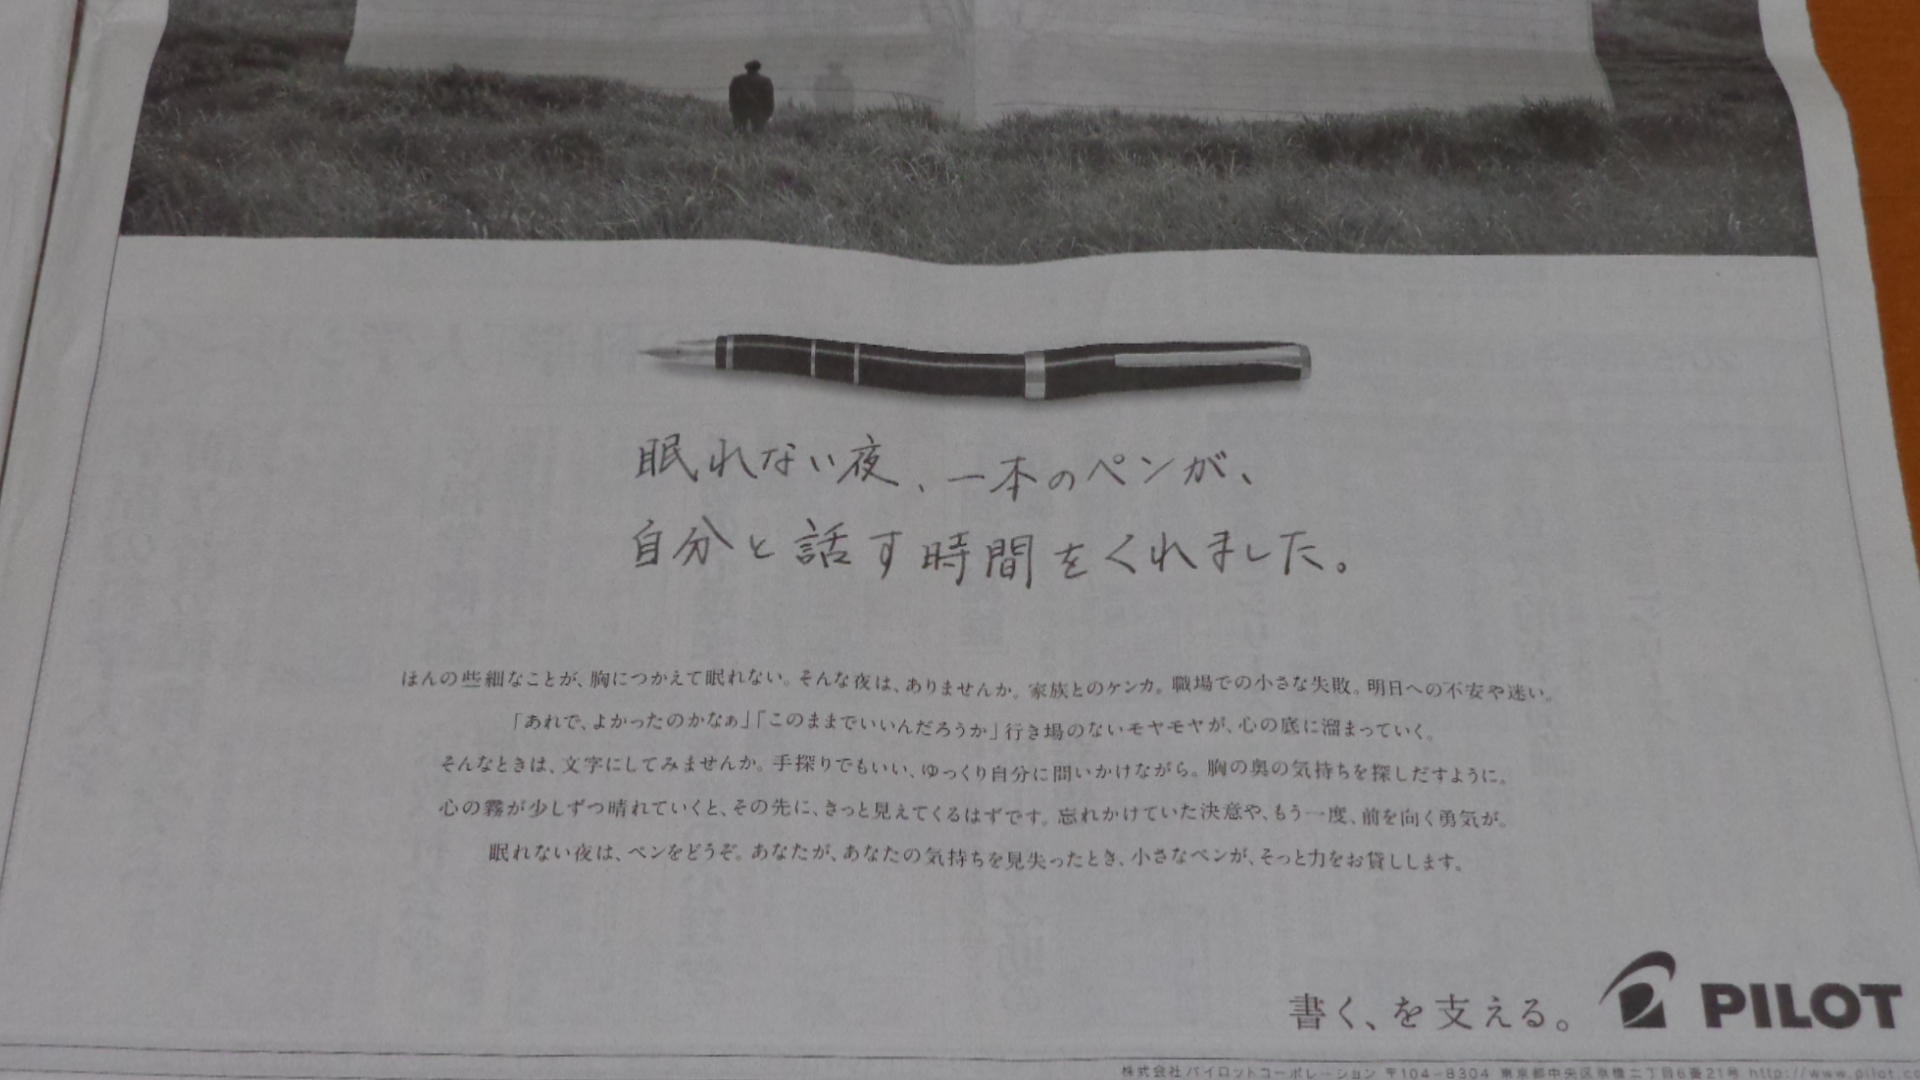 眠れない夜、一本のペンが、
自分と話す時間をくれました。
ほんの些細なことが、胸につかえて眠れない。そんな夜は、ありませんか。家族とのケンカ。職場での小さな失敗。明日への不安や迷い。
「あれで、よかったのかなぁ」「このままでいいんだろうか」行き場のないモヤモヤが、心の底に溜まっていく。
そんなときは、文字にしてみませんか。手探りでもいい、ゆっくり自分に問いかけながら。胸の奥の気持ちを探しだすように。
心の霧が少しずつ晴れていくと、その先に、きっと見えてくるはずです。忘れかけていた決意や、もう一度、前を向く勇気が。
眠れない夜は、ペンをどうぞ。あなたが、あなたの気持ちを見失ったとき、小さなペンが、そっと力をお貸しします。
書く、を支える。 PILOT
株式会社パイロットコーポレーション 〒104-8304 東京都中央区京橋二丁目6番21号 http://www.pilot.co